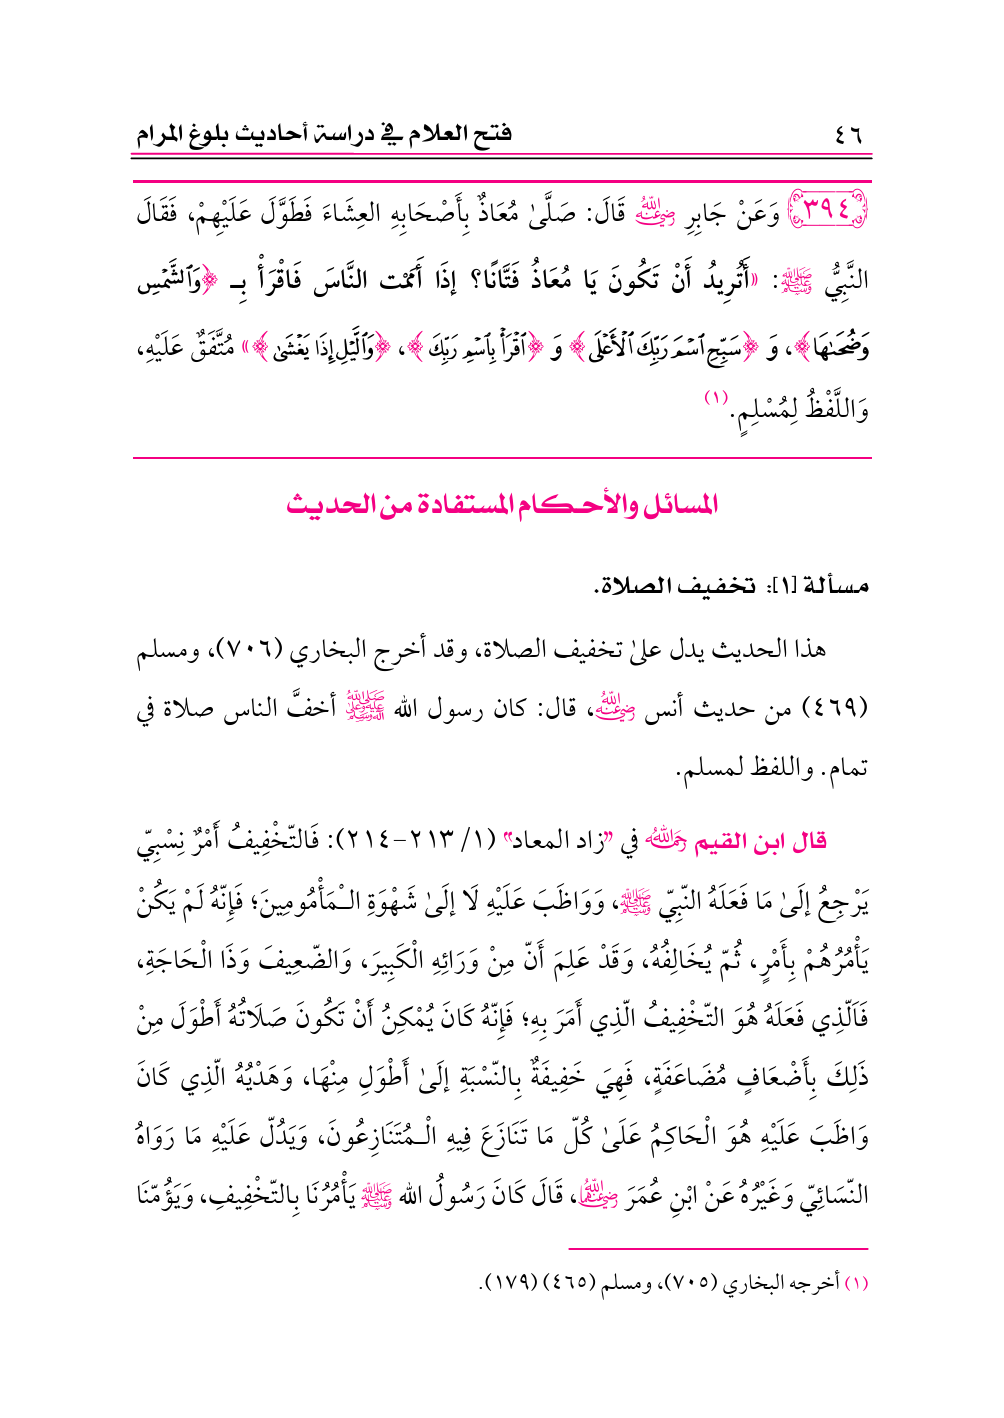 ٤٦ فتح العلام في دراسة أحاديث بلوغ المرام
﴿٣٩٤﴾ وَعَنْ جَابِرٍ رضي الله عنه قَالَ: صَلَّىٰ مُعَاذٌ بِأَصْحَابِهِ العِشَاءَ فَطَوَّلَ عَلَيْهِمْ، فَقَالَ
النَّبِيُّ ﷺ: «أَتُرِيدُ أَنْ تَكُونَ يَا مُعَاذُ فَتَّانًا؟ إذَا أَمَمْت النَّاسَ فَاقْرَأْ بِـ ﴿وَٱلشَّمْسِ
وَضُحَىٰهَا﴾، وَ ﴿سَبِّحِ ٱسْمَ رَبِّكَ ٱلْأَعْلَى﴾ وَ ﴿ٱقْرَأْ بِٱسْمِ رَبِّكَ﴾، ﴿وَٱلَّيْلِ إِذَا يَغْشَىٰ﴾» مُتَّفَقٌ عَلَيْهِ،
وَاللَّفْظُ لِمُسْلِمٍ.(١)
المسائل والأحكام المستفادة من الحديث
مسألة [١]: تخفيف الصلاة.
هذا الحديث يدل علىٰ تخفيف الصلاة، وقد أخرج البخاري (٧٠٦)، ومسلم
(٤٦٩) من حديث أنس رضي الله عنه، قال: كان رسول الله ﷺ أخفَّ الناس صلاة في
تمام. واللفظ لمسلم.
قال ابن القيم رحمه الله في "زاد المعاد" (١/ ٢١٣-٢١٤): فَالتّخْفِيفُ أَمْرٌ نِسْبِيّ
يَرْجِعُ إلَىٰ مَا فَعَلَهُ النّبِيّ ﷺ، وَوَاظَبَ عَلَيْهِ لَا إلَىٰ شَهْوَةِ الْـمَأْمُومِينَ؛ فَإِنّهُ لَمْ يَكُنْ
يَأْمُرُهُمْ بِأَمْرٍ، ثُمّ يُخَالِفُهُ، وَقَدْ عَلِمَ أَنّ مِنْ وَرَائِهِ الْكَبِيرَ، وَالضّعِيفَ وَذَا الْحَاجَةِ،
فَاَلّذِي فَعَلَهُ هُوَ التّخْفِيفُ الّذِي أَمَرَ بِهِ؛ فَإِنّهُ كَانَ يُمْكِنُ أَنْ تَكُونَ صَلَاتُهُ أَطْوَلَ مِنْ
ذَلِكَ بِأَضْعَافٍ مُضَاعَفَةٍ، فَهِيَ خَفِيفَةٌ بِالنّسْبَةِ إلَىٰ أَطْوَلِ مِنْهَا، وَهَدْيُهُ الّذِي كَانَ
وَاظَبَ عَلَيْهِ هُوَ الْحَاكِمُ عَلَىٰ كُلّ مَا تَنَازَعَ فِيهِ الْـمُتَنَازِعُونَ، وَيَدُلّ عَلَيْهِ مَا رَوَاهُ
النّسَائِيّ وَغَيْرُهُ عَنْ ابْنِ عُمَرَ رضي الله عنهما، قَالَ كَانَ رَسُولُ الله ﷺ يَأْمُرُنَا بِالتّخْفِيفِ، وَيَؤُمّنَا
(١) أخرجه البخاري (٧٠٥)، ومسلم (٤٦٥) (١٧٩).